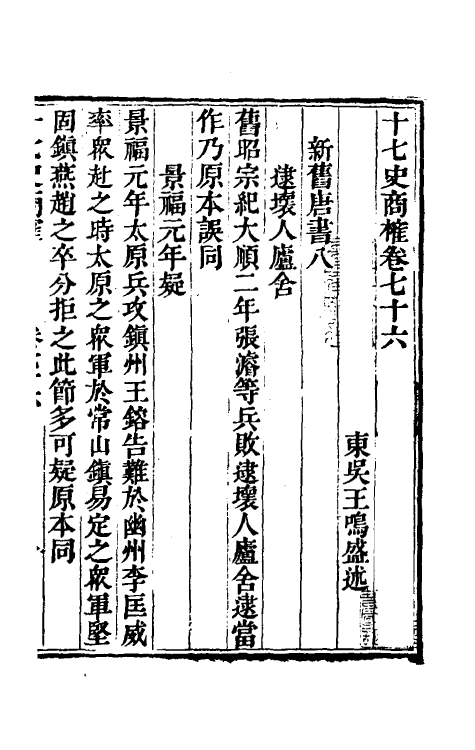 十七史商榷卷七十六
東吳王鳴盛述
新舊唐書八
逮壞人廬舍
舊昭宗紀大順二年張濬等兵敗逮壞人廬舍逮當
作乃原本誤同
景福元年疑
景福元年太原兵攻鎮州王鎔告難於幽州李匡威
率眾赴之時太原之眾軍於常山鎮易定之眾軍堅
固鎮燕趙之卒分拒之此節多可疑原本同